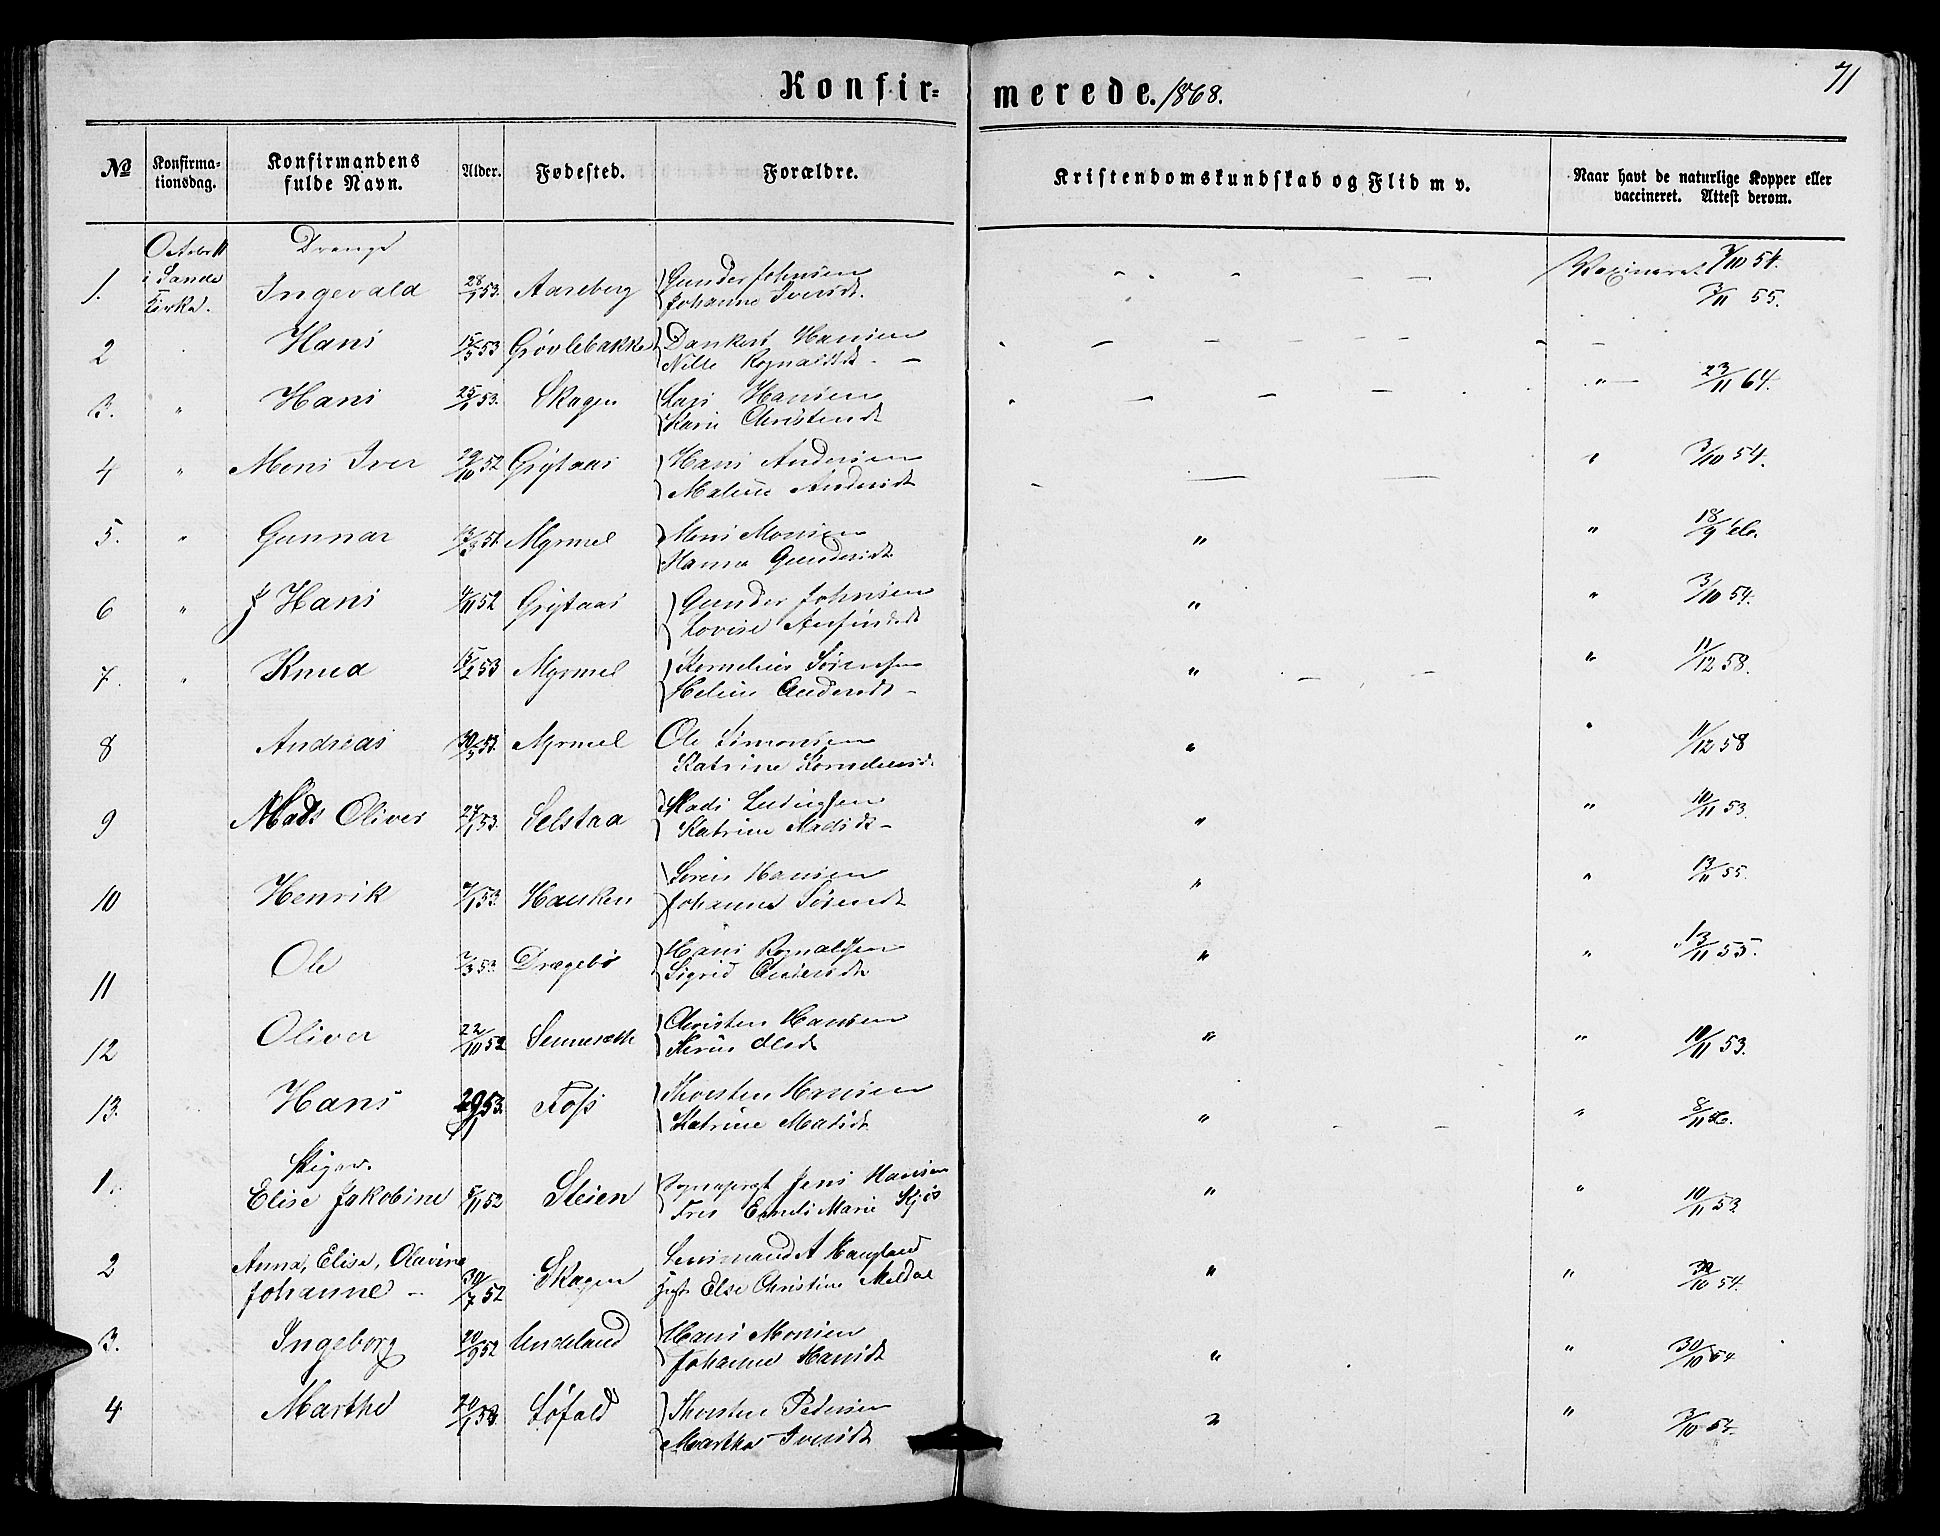 Konfir-
merede. 1868.
71
No
Konfirma-
tionsdag.
Konfirmandens
fulde Navn.
Alder.
Fødested.
Forældre.
Kristendomskundskab og Flid m v.
Naar havt de naturlige Kopper eller
vaccineret. Attest derom.
Drenge
1. i Sande Kirke. Ingevald 28/1 53. Aareberg Gunder Johnsen
Johanne Iversdt. 7/10 54.
3/11 55.
2 Hans 15/5 53 Grøvlebakke Dankert Hansen
Nille Rognaldsdt.
3. " Hans 25/1 53. Skagen Lars Hansen
Kari Christensdt " 23/11 64.
4 " Mons Iver 29/10 52 Grytaas Hans Andersen
Malene Andersdt " 3/10 54.
5. " Gunnar Myrmel Mons Monsen
Hanna Gundersdt " " 18/9
6 " Hans 4/11 52 Grytaas Gunder Johnsen
Lovise " " 3/10 54.
7. " Knud 15/2 53 Myrmel Kornelius Sørensen
Helene Andersdt " " 11/12 58.
8 Andreas 30/5 53. Myrmel Ole Simonsen
Katrine Korneliusdt. " " 11/12 58
9 Mads Oliver 27/1 53. Selstaa Mads Ludvigsen
Katrine Madsdt " " 10/11 53.
10 Henrik 7/1 53. Hausken Søren Hansen
Johanne Sørensdt " " 13/11 55.
11 Ole 7/3 53. Drægebø Hans Rognaldsen
Sigrid " " 13/11 55.
12 Oliver 22/10 52 Christen Hansen
Olsdt " " 10/11 53.
13. Hans 29/1 53. Foss Thorsten Hansen
Katrine Madsdt " " 8/11
Piger.
1. Elise Jakobine 5/11 52 Steien Sognepræst Jens Hansen
Marie " " 10/11 53
2 Anna, Elise, Olavine
Johanne 30/7 52 Skagen Lensmand A Haugland
Else Christine Meldal " " 30/10 54.
3. Ingeborg 20/9 52 Undeland Hans Monsen
Johanne Hansdt " " 30/10 54
4 Marthe 20/1 53. Søfald Thorsten Pedersen
Marthe Iversdt " " 3/10 54.